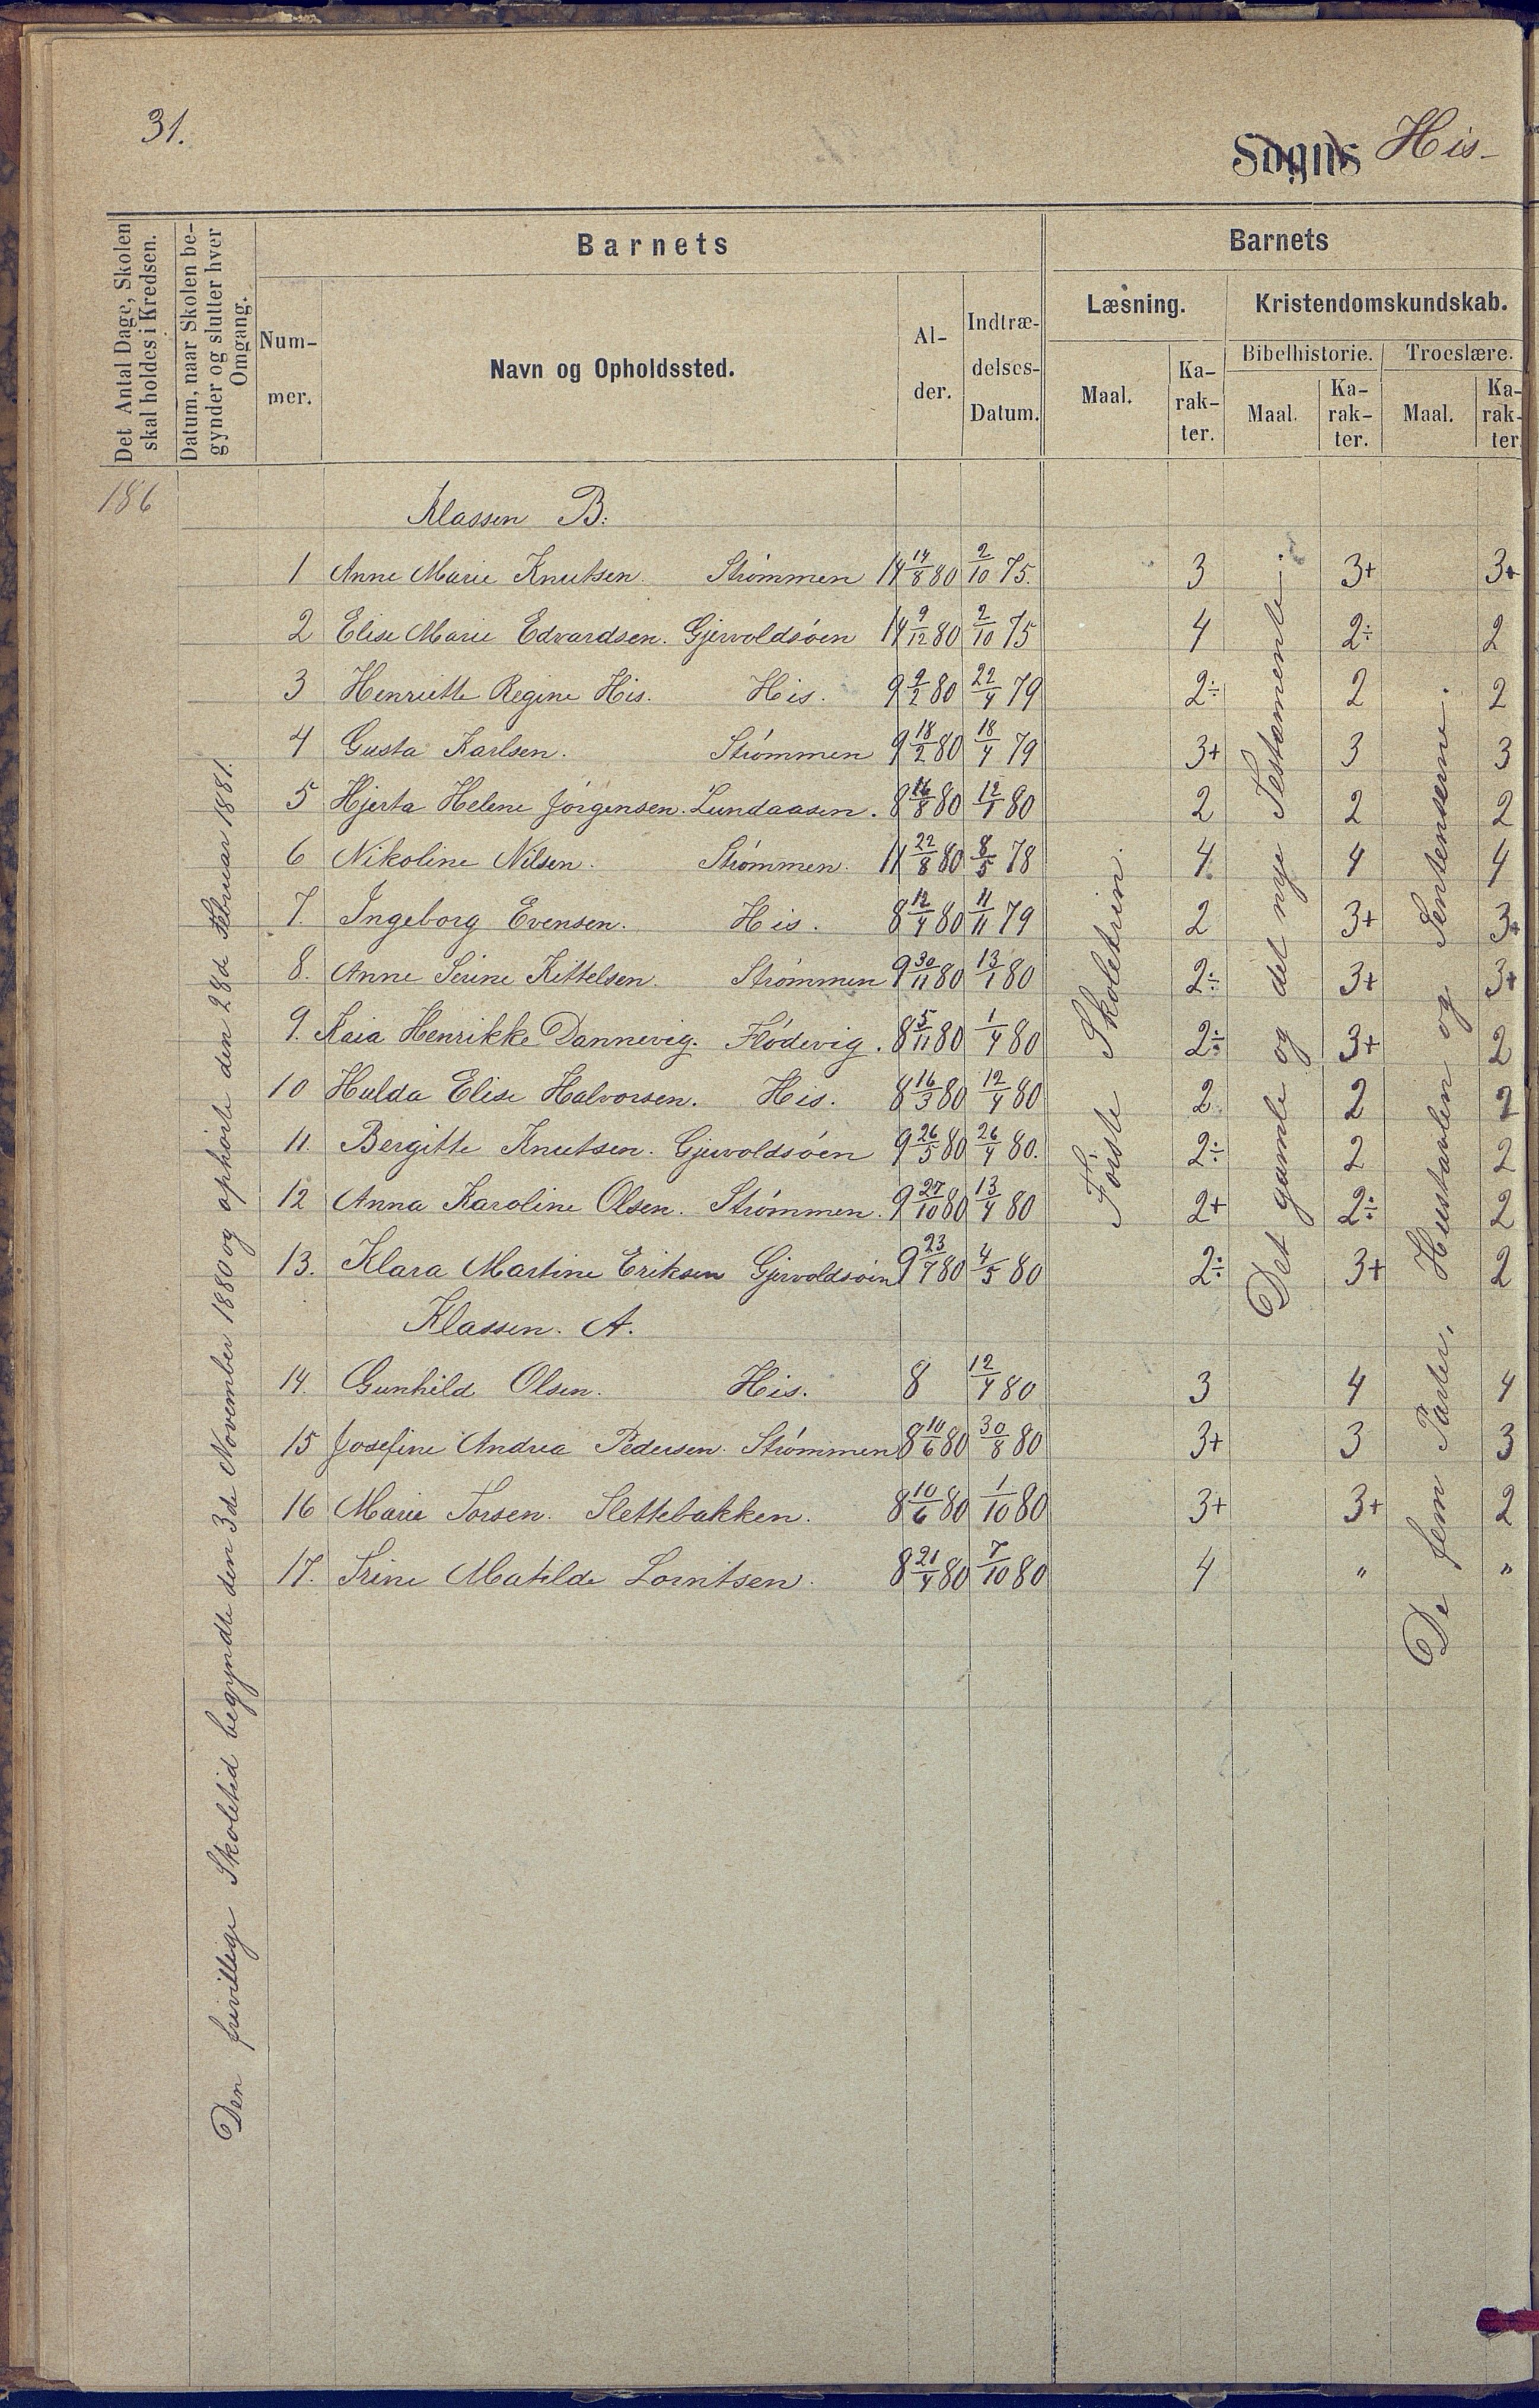 31.
Sogns His-
Det Antal Dage, Skolen
skal holdes i Kredsen.
Datum, naar Skolen be-
gynder og slutter hver
Omgang.
Barnets
Num-
mer.
Navn og Opholdssted.
Al-
der.
Indtræ-
delses-
Datum.
Barnets
Læsning.
Maal.
Ka-
rak-
ter.
Kristendomskundskab.
Bibelhistorie.
Maal.
Ka-
rak-
ter.
Troeslære.
Maal.
Ka-
rak-
ter
186
Den frivillige Skoletid begyndte den 3de November 1880 og ophörte den 28de Februar 1881.
Første Skoletrin.
Det gamle og det nye Testamente.
De fem Parter, Hustavlen og Sentenserne.
Klassen B:
1 Anne Marie Knutsen. Strømmen 14 14/8 80 2/10 75. 3 3+ 3+
2 Elise Marie Edvardsen. Gjervoldsøen 14 9/12 80 2/10 75 4 2÷ 2
3 Henriette Regine His. His. 9 9/2 80 22/4 79 2÷ 2 2
4 Gusta Karlsen. Strømmen 9 18/2 80 18/4 79 3+ 3 3
5 Hjerta Helene Jørgensen. Lundaasen. 8 16/8 80 12/1 80 2 2 2
6 Nikoline Nilsen. Strømmen. 11 22/8 80 8/5 78 4 4 4
7. Ingeborg Evensen. His. 8 12/4 80 11/11 79 2 3+ 3+
8. Anne Serine Kittelsen. Strømmen 9 30/11 80 13/1 80 2÷ 3+ 3+
9. Kaia Henrikke Dannevig. Flødevig. 8 5/11 80 1/4 80 2÷ 3+ 2
10 Hulda Elise Halvorsen. His. 8 16/3 80 12/4 80 2 2 2
11. Bergitte Knutsen. Gjervoldsøen 9 26/5 80 26/4 80. 2÷ 2 2
12 Anna Karoline Olsen. Strømmen. 9 27/10 80 13/4 80 2+ 2÷ 2
13. Klara Martine Eriksen Gjervoldsøen 9 23/7 80 4/5 80 2÷ 3+ 2
Klassen. A.
14. Gunhild Olsen. His. 8 12/4 80 3 4 4
15 Josefine Andrea Pedersen. Strømmen 8 10/6 80 30/8 80 3+ 3 3
16 Marie Torsen. Slettebakken. 8 10/6 80 1/10 80 3+ 3+ 2
17. Trine Matilde Lorntsen. 8 21/4 80 7/10 80 4 " "